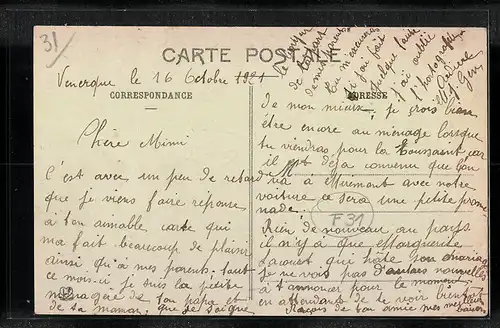 31
CARTE POSTALE
Venerque le 16 Octobre 1921
CORRESPONDANCE
ADRESSE
Chère Mimi
C'est avec un peu de retard
que je viens faire réponse
à ton aimable carte qui
m'a fait beaucoup de plaisir
ainsi qu'à mes parents. tout
ce mois-ci je suis la petite
ménagère de ton papa et
de ta maman, que je soigne
de mon mieux, je crois bien
être encore au ménage lorsque
tu viendras pour la Toussaint car
il est déjà convenu que l'on
va à Miremont avec notre
voiture ce sera une petite prome-
nade.
F31
Rien de nouveau au pays
il n'y a que Marguerite
Lacoust qui hâte son mariage
je ne vois pas d'autres nouvelles
à t'annoncer pour le moment
en attendant de te voir bientôt
Reçois de ton amie mes meilleurs
baisers
de départ
tu m'excuseras
si j'ai fait
quelque faute
j'ai oublié
l'